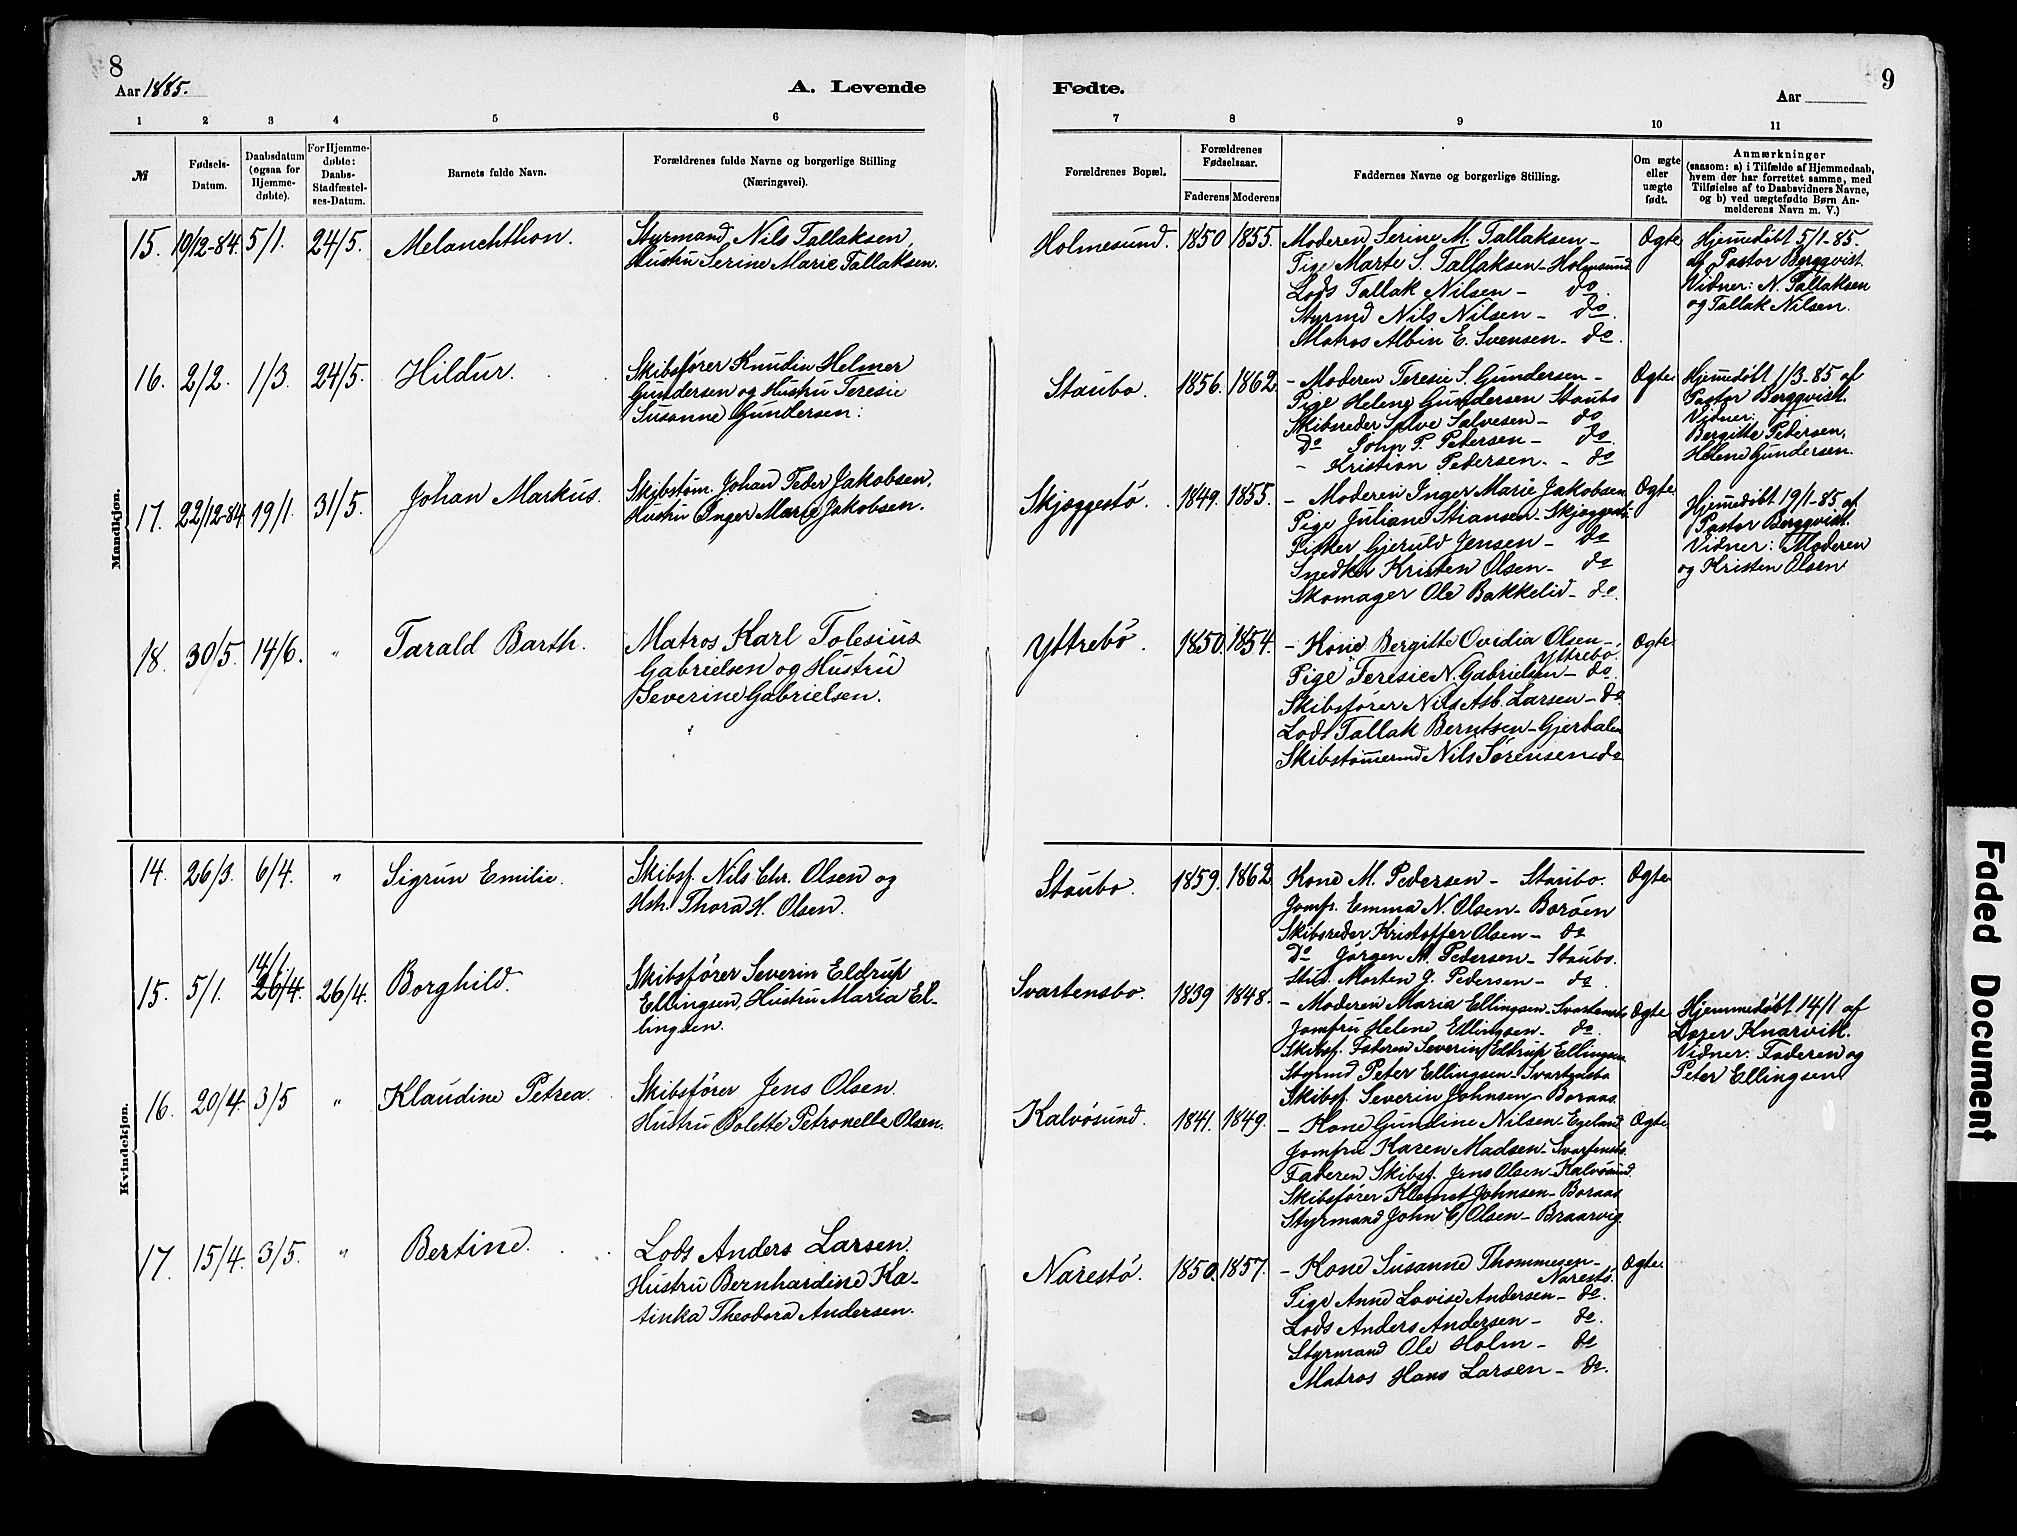 8
Aar 1885.
A. Levende
1 2 3 4 5 6
№
Fødsels-
Datum.
Daabsdatum
(ogsaa for
Hjemme-
døbte).
For Hjemme-
døbte:
Daabs-
Stadfæstel-
ses-Datum.
Barnets fulde Navn.
Forældrenes fulde Navne og borgerlige Stilling
(Næringsvei).
Mandkjøn.
15. 19/12-84. 5/1. 24/5. Melanchthon.
Styrmand Nils Tallaksen,
Hustru Serine Marie Tallaksen.
16. 2/2. 1/3. 24/5. Hildur.
Skibsfører Knudin Helmer
Gundersen og Hustru Teresie
Susanne Gundersen:
17. 22/12-84 19/1. 31/5. Johan Markus.
Skibstøm. Johan Peder Jakobsen,
Hustru Inger Marie Jakobsen.
18. 30/5. 14/6. " Tarald Barth.
Matros Karl Tolesius
Gabrielsen og Hustru
Severine Gabrielsen.
Kvindekjøn.
14. 26/3. 6/4. " Sigrun Emilie.
Skibsf. Nils Chr. Olsen og
Hstr. Thora H. Olsen.
14/1
15. 5/1. 26/4. 26/4. Borghild.
Skibsfører Severin Eldrup
Ellingsen, Hustru Maria El-
lingsen.
16. 20/4. 3/5 " Klaudine Petrea.
Skibsfører Jens Olsen.
Hustru Bolette Petronelle Olsen.
17. 15/4. 3/5. " Bertine.
Lods Anders Larsen.
Hustru Bernhardine Ka-
tinka Theodora Andersen.
9
Fødte.
Aar
7 8 9 10 11
Forældrenes Bopæl.
Forældrenes
Fødselsaar.
Faderens Moderens
Faddernes Navne og borgerlige Stilling.
Om ægte
eller
uægte
født.
Anmærkninger
(saasom: a) i Tilfælde af Hjemmedaab,
hvem der har forrettet samme, med
Tilføielse af to Daabsvidners Navne,
og b) ved uægtefødte Børn An-
melderens Navn m. V.)
Holmesund. 1850 1855.
Moderen Serine M. Tallaksen -
Pige Marte S. Tallaksen - Holmsund
Lods Tallak Nilsen - do.
Styrmd Nils Nilsen - do.
Matros Albin E. Svensen - do.
Ægte
Hjemedøbt 5/1-85.
af Pastor Bergqvist.
Vidner: N. Tallaksen
og Tallak Nilsen.
Staubo. 1856. 1862
- Moderen Teresie S. Gundersen -
Pige Helene Gundersen Staubo
Skibsreder Salve Salvesen - do
Do John P. Pedersen - do.
- Kristian Pedersen. - do
Ægte
Hjemedøbt 1/3-85 af
Pastor Bergqvist.
Vidner:
Bergitte Pedersen,
Helene Gundersen.
Skjeggestø. 1849. 1855.
- Moderen Inger Marie Jakobsen
Pige Juliane Stiansen - Skjeggestø.
Fisker Gjeruld Jensen - do
Snedker Kristen Olsen - do
Skomager Ole Bakkelid - do.
Ægte
Hjemedøbt 19/1-85 af
Pastor Bergqvist.
Vidner: Moderen
og Kristen Olsen
Yttrebø. 1850. 1854.
- Kone Bergitte Ovidia Olsen -
Yttrebø.
Pige Teresie N. Gabrielsen - do
Skibsfører Nils Asb. Larsen - do
Lods Tallak Berntsen - Gjerdalen
Skibstømermd Nils Sørensen do
Ægte
Staubo. 1859. 1862
Kone M. Pedersen - Staubo.
Jomfr. Emma N. Olsen - Borøen
Skibsreder Kristoffer Olsen - do
Do Jørgen M. Pedersen - Staubo.
Stud. Morten J. Pedersen - do
Ægte
Svartensbo. 1839 1848.
- Moderen Maria Ellingsen - Svartensbo
Jomfru Helene Ellingsen - do.
Skibsf. Faderen Severin Eldrup Ellingsen
Styrmd Peter Ellingsen - Svartensbo
Skibsf. Severin Johnsen - Boraas.
Ægte
Hjemmedøbt 14/1 af
Lærer Knarvik.
Vidner: Faderen og
Peter Ellingsen
Kalvøsund. 1841. 1849.
- Kone Gundine Nilsen - Egeland
Jomfru Karen Madsen - Svartensbo.
Faderen Skibsf. Jens Olsen - Kalvøsund.
Skibsfører Klemet Johnsen - Boraas
Styrmand John C. Olsen - Braarvig.
Ægte
Narestø. 1850. 1857.
- Kone Susanne Thommesen -
Narestø.
Pige Anne Lovise Andersen - do.
Lods Anders Andersen - do.
Styrmand Ole Holm - do
Matros Hans Larsen - do.
Ægte.
Faded Document